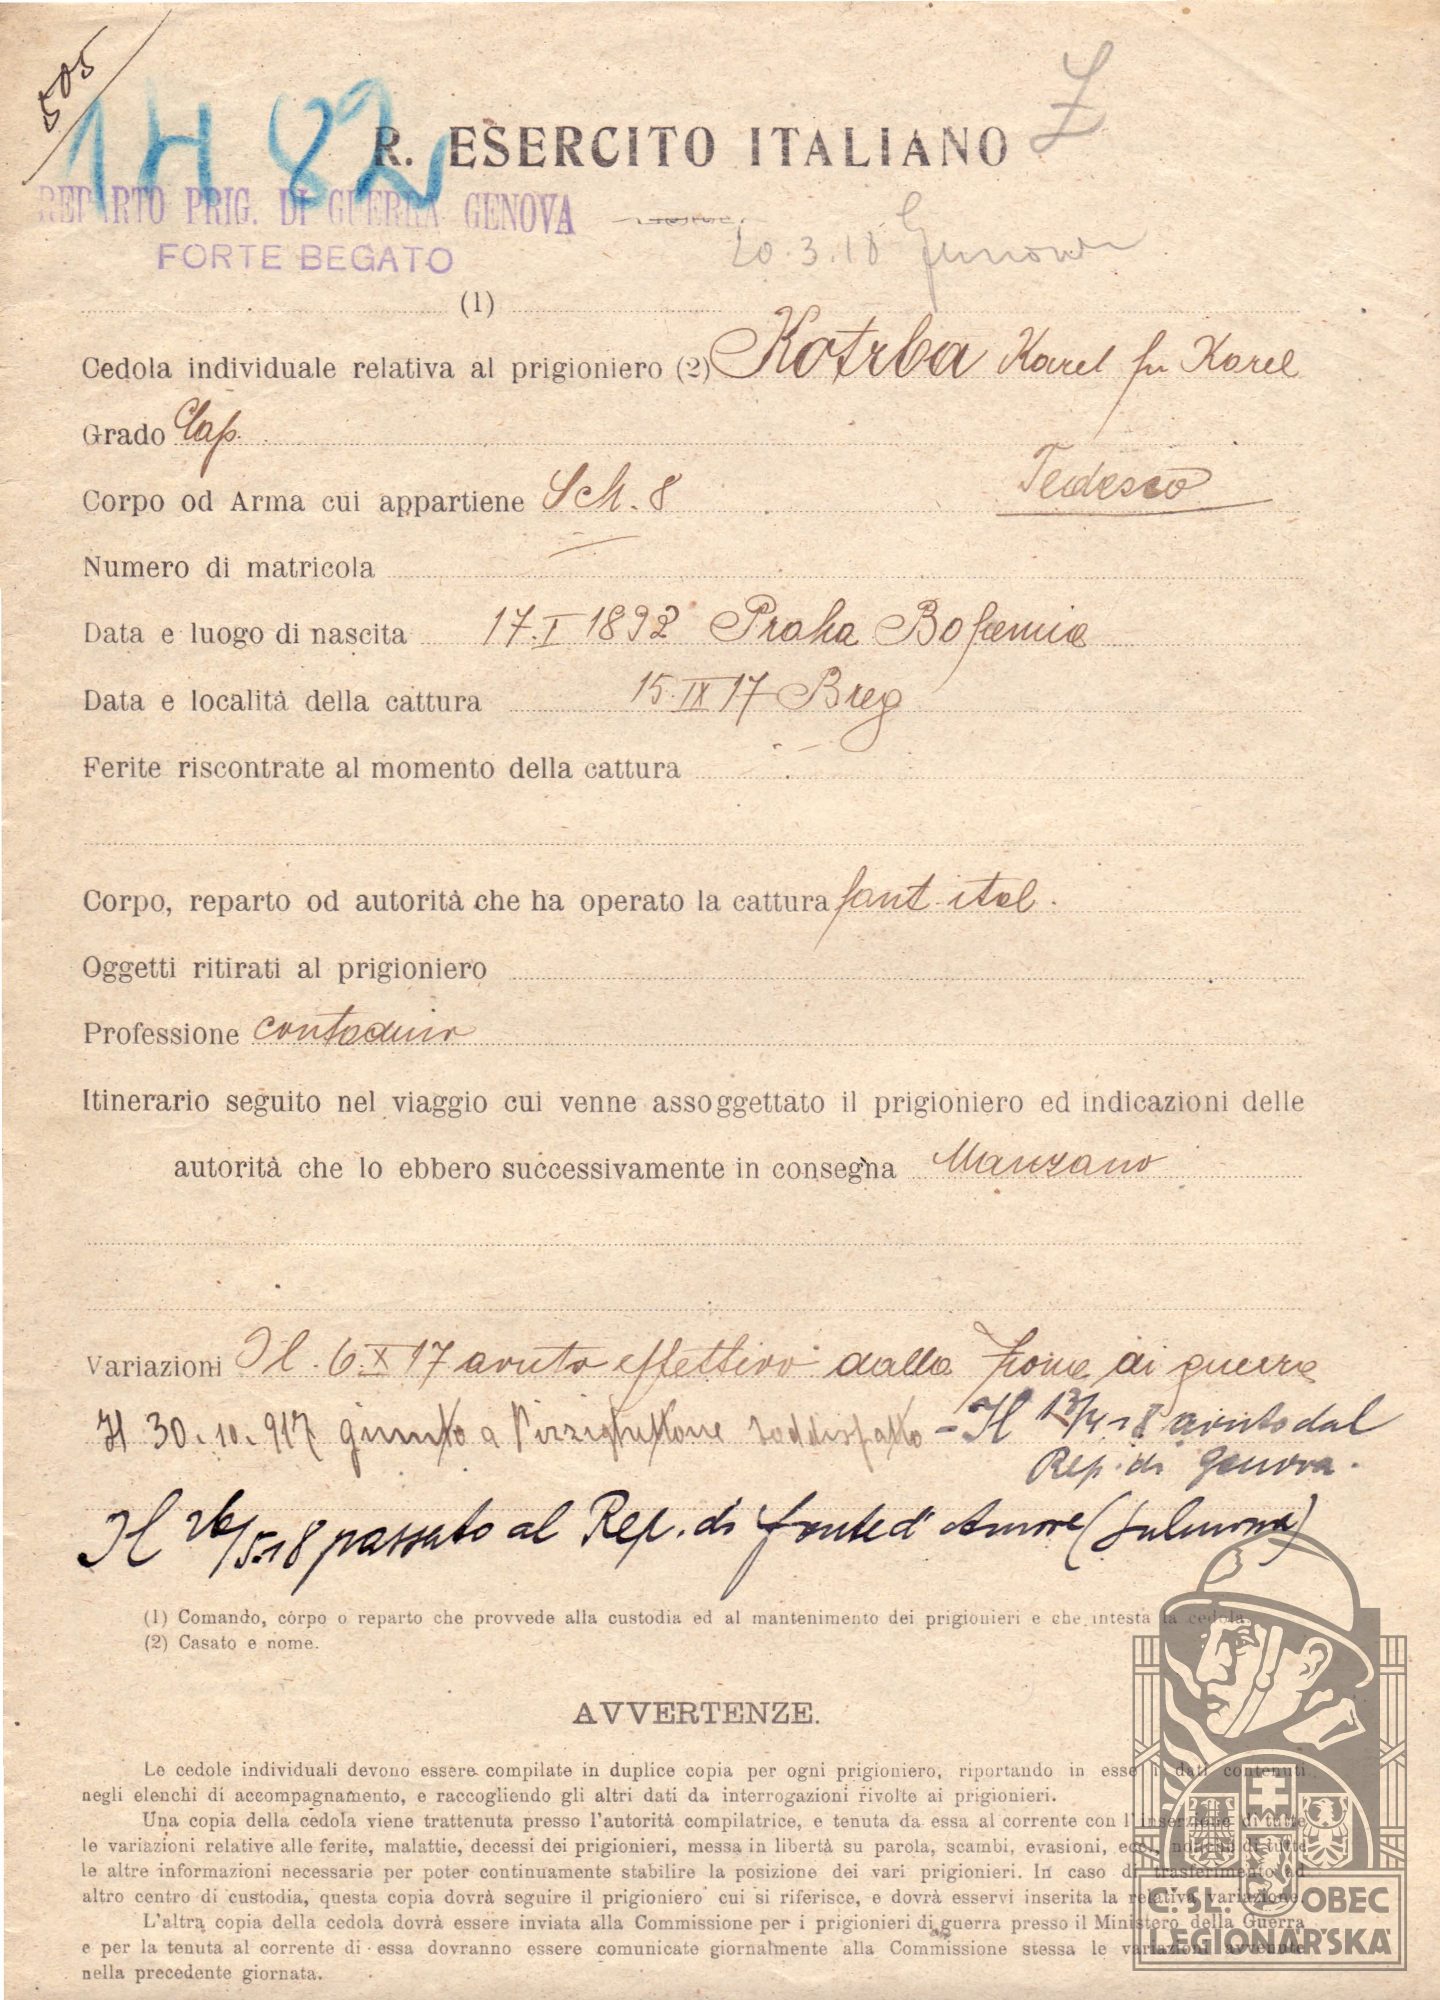 505
1H 82
R. ESERCITO ITALIANO
REPARTO PRIG. DI GUERRA GENOVA
FORTE BEGATO
20.3.18
(1)
Cedola individuale relativa al prigioniero (2) Kotrba Karel fu Karel
Grado Cap.
Corpo od Arma cui appartiene Sch. 8 Tedesco
Numero di matricola
Data e luogo di nascita 17.I 1892 Praha Bohemia
Data e località della cattura 15.IX 17 Breg
Ferite riscontrate al momento della cattura
Corpo, reparto od autorità che ha operato la cattura fant. ital.
Oggetti ritirati al prigioniero
Professione contadino
Itinerario seguito nel viaggio cui venne assoggettato il prigioniero ed indicazioni delle
autorità che lo ebbero successivamente in consegna Manzano
Variazioni Il 6.X 17 avuto effettivo dalla zona di guerra
Il 30.10.917 giunto a Pizzighettone soddisfatto - Il 13/4 18 avuto dal
Rep. di Genova.
Il 26/5 18 passato al Rep. di Fonte d'Amore (Sulmona)
(1) Comando, corpo o reparto che provvede alla custodia ed al mantenimento dei prigionieri e che intesta la cedola.
(2) Casato e nome.
AVVERTENZE.
Le cedole individuali devono essere compilate in duplice copia per ogni prigioniero, riportando in esse i dati contenuti
negli elenchi di accompagnamento, e raccogliendo gli altri dati da interrogazioni rivolte ai prigionieri.
Una copia della cedola viene trattenuta presso l'autorità compilatrice, e tenuta da essa al corrente con l'inserzione di tutte
le variazioni relative alle ferite, malattie, decessi dei prigionieri, messa in libertà su parola, scambi, evasioni, ecc., nonchè di tutte
le altre informazioni necessarie per poter continuamente stabilire la posizione dei vari prigionieri. In caso di trasferimento ad
altro centro di custodia, questa copia dovrà seguire il prigioniero cui si riferisce, e dovrà esservi inserita la relativa variazione.
L'altra copia della cedola dovrà essere inviata alla Commissione per i prigionieri di guerra presso il Ministero della Guerra
e per la tenuta al corrente di essa dovranno essere comunicate giornalmente alla Commissione stessa le variazioni avvenute
nella precedente giornata.
Č. SL. OBEC
LEGIONÁŘSKÁ